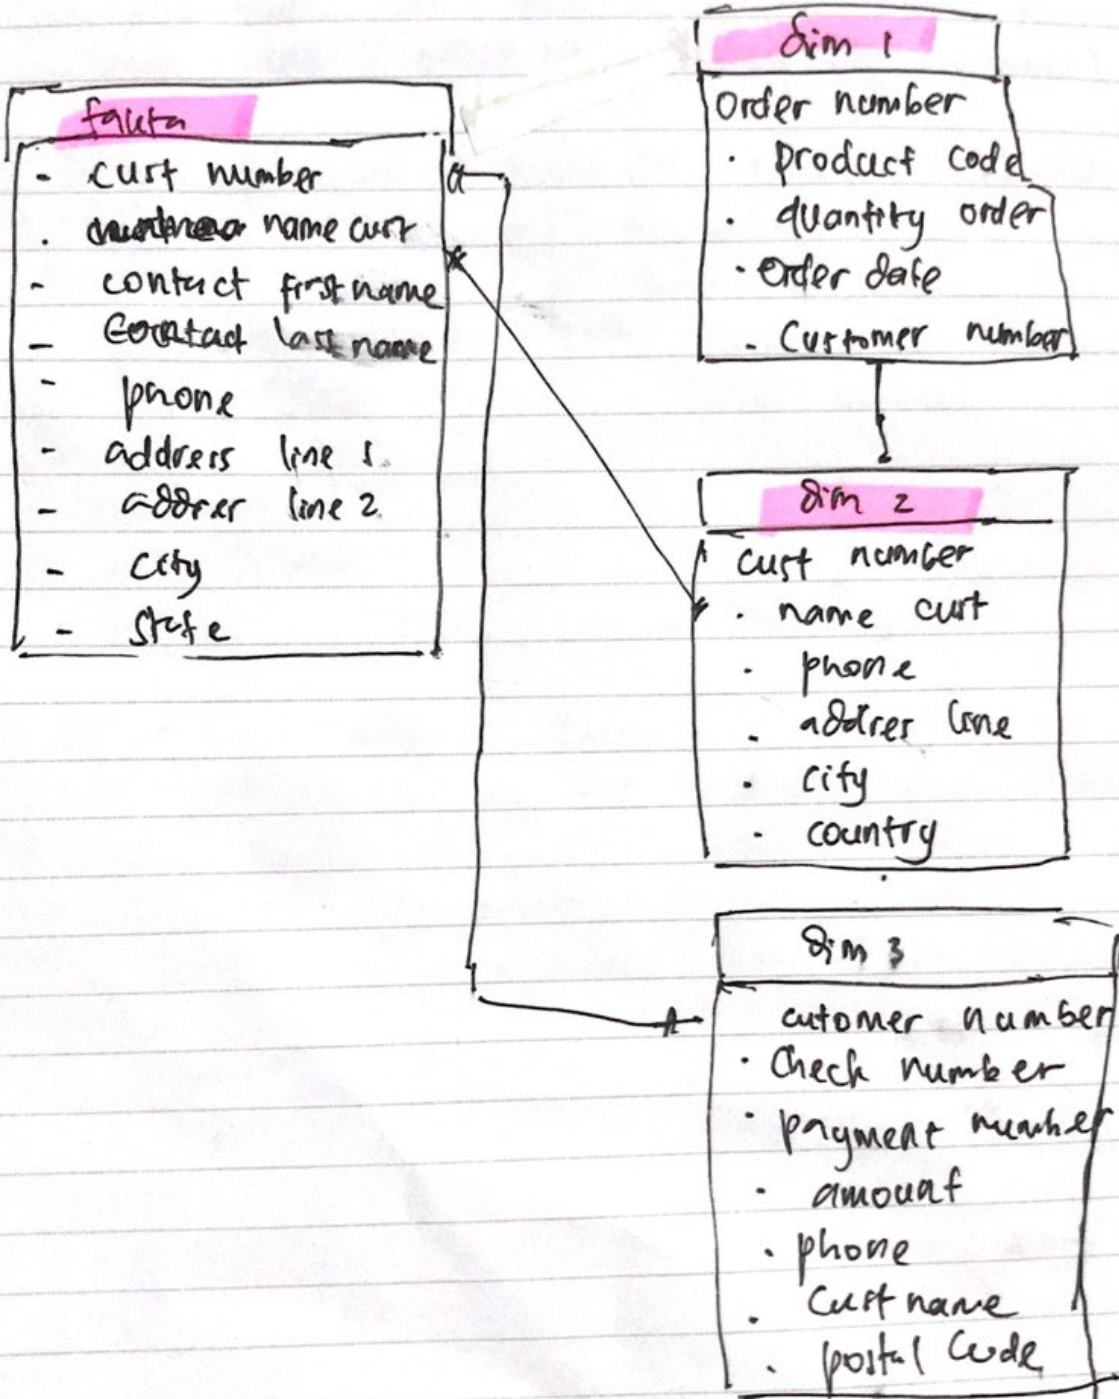 fakta
- cust number
. name cust
- contact first name
- Contact last name
- phone
- address line 1
- addrer line 2
- city
- state
dim 1
Order number
. product code
. quantity order
. Order date
. Customer number
dim 2
cust number
. name cust
. phone
. addres line
. city
. country
dim 3
cutomer number
. Check number
. payment number
. amount
. phone
. Cust name
. postal Code